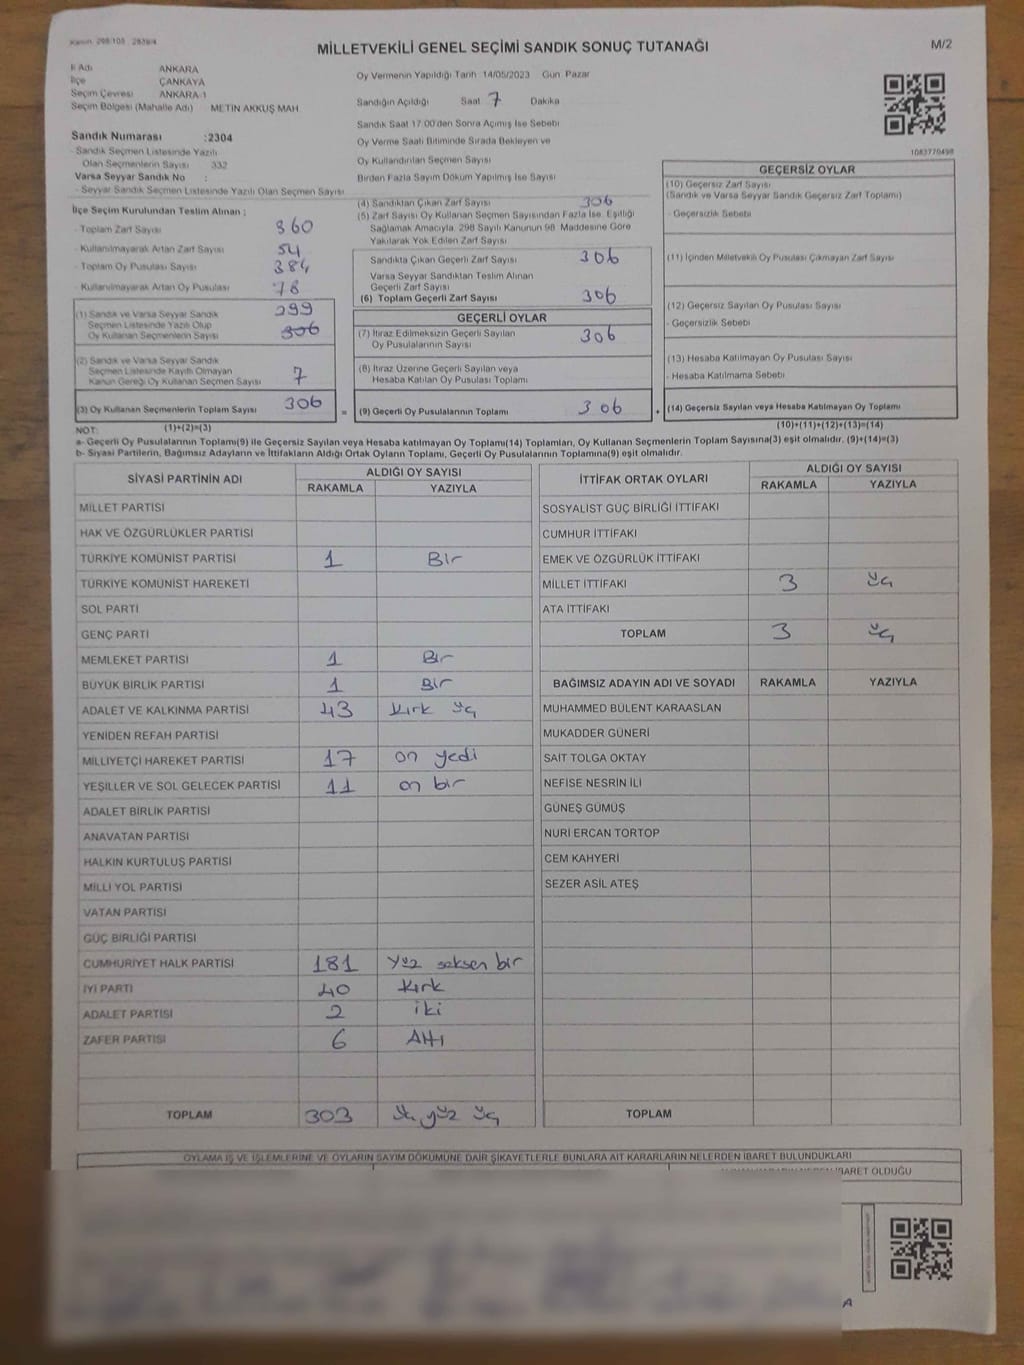 Kanun: 298/105 2839/4
MİLLETVEKİLİ GENEL SEÇİMİ SANDIK SONUÇ TUTANAĞI
M/2
İl Adı ANKARA
İlçe ÇANKAYA
Seçim Çevresi ANKARA-1
Seçim Bölgesi (Mahalle Adı) METİN AKKUŞ MAH.
Sandık Numarası :2304
- Sandık Seçmen Listesinde Yazılı
Olan Seçmenlerin Sayısı 332
Varsa Seyyar Sandık No :
- Seyyar Sandık Seçmen Listesinde Yazılı Olan Seçmen Sayısı
Oy Vermenin Yapıldığı Tarih 14/05/2023 Gün Pazar
Sandığın Açıldığı Saat 7 Dakika
Sandık Saat 17:00'den Sonra Açılmış İse Sebebi
Oy Verme Saati Bitiminde Sırada Bekleyen ve
Oy Kullandırılan Seçmen Sayısı
Birden Fazla Sayım Döküm Yapılmış İse Sayısı
1083770498
İlçe Seçim Kurulundan Teslim Alınan ;
- Toplam Zarf Sayısı 360
- Kullanılmayarak Artan Zarf Sayısı 54
- Toplam Oy Pusulası Sayısı 384
- Kullanılmayarak Artan Oy Pusulası 78
(1) Sandık ve Varsa Seyyar Sandık 299
Seçmen Listesinde Yazılı Olup
Oy Kullanan Seçmenlerin Sayısı 306
(2) Sandık ve Varsa Seyyar Sandık
Seçmen Listesinde Kayıtlı Olmayan
Kanun Gereği Oy Kullanan Seçmen Sayısı 7
(3) Oy Kullanan Seçmenlerin Toplam Sayısı 306
(4) Sandıktan Çıkan Zarf Sayısı 306
(5) Zarf Sayısı Oy Kullanan Seçmen Sayısından Fazla İse, Eşitliği
Sağlamak Amacıyla, 298 Sayılı Kanunun 98. Maddesine Göre
Yakılarak Yok Edilen Zarf Sayısı
Sandıkta Çıkan Geçerli Zarf Sayısı 306
Varsa Seyyar Sandıktan Teslim Alınan
Geçerli Zarf Sayısı
(6) Toplam Geçerli Zarf Sayısı 306
GEÇERLİ OYLAR
(7) İtiraz Edilmeksizin Geçerli Sayılan
Oy Pusulalarının Sayısı 306
(8) İtiraz Üzerine Geçerli Sayılan veya
Hesaba Katılan Oy Pusulası Toplamı
= (9) Geçerli Oy Pusulalarının Toplamı 306
GEÇERSİZ OYLAR
(10) Geçersiz Zarf Sayısı
(Sandık ve Varsa Seyyar Sandık Geçersiz Zarf Toplamı)
- Geçersizlik Sebebi
(11) İçinden Milletvekili Oy Pusulası Çıkmayan Zarf Sayısı
(12) Geçersiz Sayılan Oy Pusulası Sayısı
- Geçersizlik Sebebi
(13) Hesaba Katılmayan Oy Pusulası Sayısı
- Hesaba Katılmama Sebebi
+ (14) Geçersiz Sayılan veya Hesaba Katılmayan Oy Toplamı
NOT: (1)+(2)=(3)
(10)+(11)+(12)+(13)=(14)
a- Geçerli Oy Pusulalarının Toplamı(9) ile Geçersiz Sayılan veya Hesaba katılmayan Oy Toplamı(14) Toplamları, Oy Kullanan Seçmenlerin Toplam Sayısına(3) eşit olmalıdır. (9)+(14)=(3)
b- Siyasi Partilerin, Bağımsız Adayların ve İttifakların Aldığı Ortak Oyların Toplamı, Geçerli Oy Pusulalarının Toplamına(9) eşit olmalıdır.
SİYASİ PARTİNİN ADI ALDIĞI OY SAYISI
RAKAMLA YAZIYLA
MİLLET PARTİSİ
HAK VE ÖZGÜRLÜKLER PARTİSİ
TÜRKİYE KOMÜNİST PARTİSİ 1 Bir
TÜRKİYE KOMÜNİST HAREKETİ
SOL PARTİ
GENÇ PARTİ
MEMLEKET PARTİSİ 1 Bir
BÜYÜK BİRLİK PARTİSİ 1 Bir
ADALET VE KALKINMA PARTİSİ 43 Kırk üç
YENİDEN REFAH PARTİSİ
MİLLİYETÇİ HAREKET PARTİSİ 17 on yedi
YEŞİLLER VE SOL GELECEK PARTİSİ 11 on bir
ADALET BİRLİK PARTİSİ
ANAVATAN PARTİSİ
HALKIN KURTULUŞ PARTİSİ
MİLLİ YOL PARTİSİ
VATAN PARTİSİ
GÜÇ BİRLİĞİ PARTİSİ
CUMHURİYET HALK PARTİSİ 181 yüz seksen bir
İYİ PARTİ 40 Kırk
ADALET PARTİSİ 2 iki
ZAFER PARTİSİ 6 Altı
TOPLAM 303 üç yüz üç
İTTİFAK ORTAK OYLARI ALDIĞI OY SAYISI
RAKAMLA YAZIYLA
SOSYALİST GÜÇ BİRLİĞİ İTTİFAKI
CUMHUR İTTİFAKI
EMEK VE ÖZGÜRLÜK İTTİFAKI
MİLLET İTTİFAKI 3 üç
ATA İTTİFAKI
TOPLAM 3 üç
BAĞIMSIZ ADAYIN ADI VE SOYADI RAKAMLA YAZIYLA
MUHAMMED BÜLENT KARAASLAN
MUKADDER GÜNERİ
SAİT TOLGA OKTAY
NEFİSE NESRİN İLİ
GÜNEŞ GÜMÜŞ
NURİ ERCAN TORTOP
CEM KAHYERİ
SEZER ASİL ATEŞ
TOPLAM
OYLAMA İŞ VE İŞLEMLERİNE VE OYLARIN SAYIM DÖKÜMÜNE DAİR ŞİKAYETLERLE BUNLARA AİT KARARLARIN NELERDEN İBARET BULUNDUKLARI
İBARET OLDUĞU
A